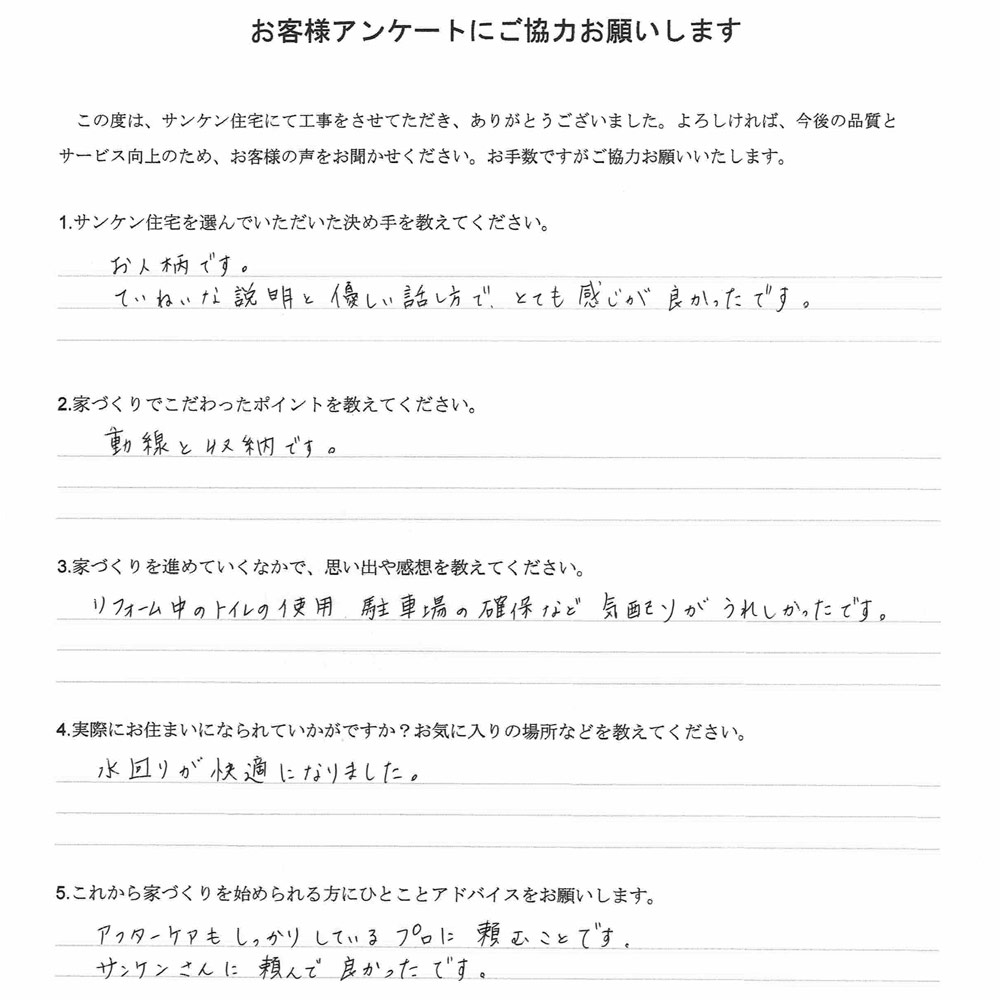 お客様アンケートにご協力お願いします
この度は、サンケン住宅にて工事をさせてただき、ありがとうございました。よろしければ、今後の品質と
サービス向上のため、お客様の声をお聞かせください。お手数ですがご協力お願いいたします。
1.サンケン住宅を選んでいただいた決め手を教えてください。
お人柄です。
ていねいな説明と優しい話し方で、とても感じが良かったです。
2.家づくりでこだわったポイントを教えてください。
動線と収納です。
3.家づくりを進めていくなかで、思い出や感想を教えてください。
リフォーム中のトイレの使用 駐車場の確保など 気配りがうれしかったです。
4.実際にお住まいになられていかがですか？お気に入りの場所などを教えてください。
水回りが快適になりました。
5.これから家づくりを始められる方にひとことアドバイスをお願いします。
アフターケアもしっかりしているプロに頼むことです。
サンケンさんに頼んで良かったです。